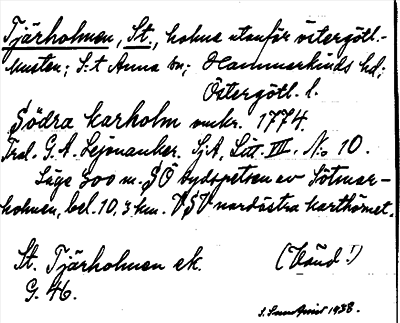 Tjärholmen, St., holme utanför östergötl.-
kusten; S:t Anna sn; Hammarkinds hd;
Östergötl. l.
Södra karholm omkr. 1774.
Trol. G. A. Lejonanker. SjA, Litt. III. N:o 10.
Läge 300 m. SÖ sydspetsen av Lötmar-
holmen, bel. 10,3 km. VSV nordöstra karthörnet.
St. Tjärholmen ek.
(Vänd!)
G. 46.
1938.